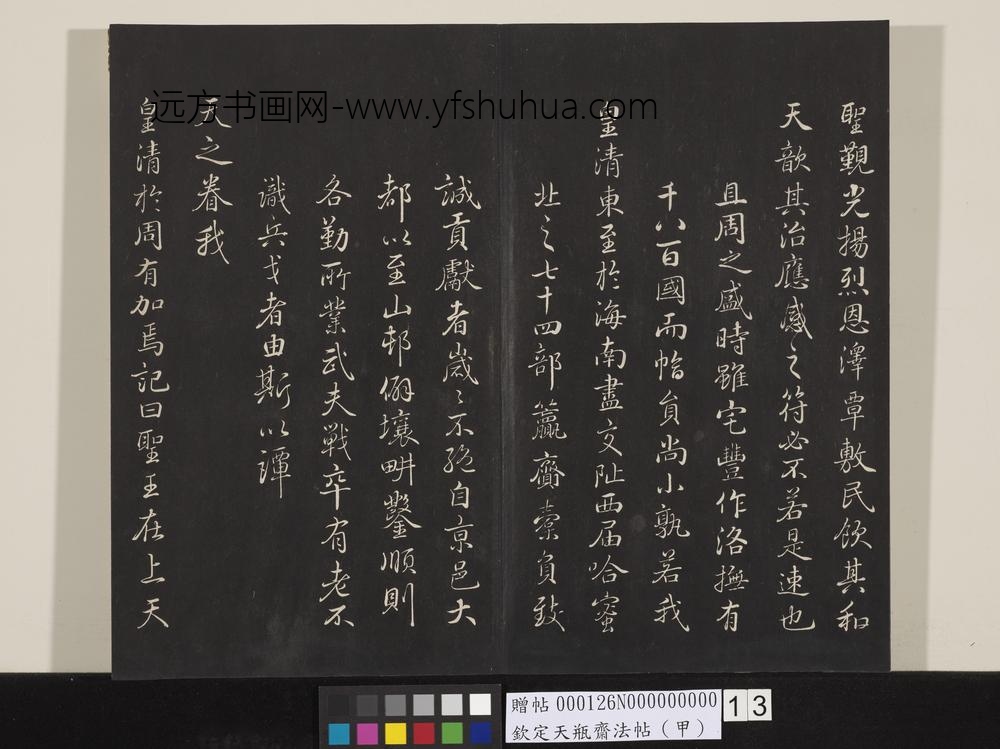 聖觐光揚烈恩澤覃敷民飲其和
天歆其治應感之符必不若是速也
且周之盛時雖宅豐作洛撫有
千八百國而幅員尚小孰若我
皇清東至於海南盡交阯西届哈蜜
北之七十四部籝齎橐負致
誠貢獻者歲〻不絶自京邑大
都以至山邨僻壤畊鑿順則
各勤所業武夫戰卒有老不
識兵戈者由斯以譚
天之眷我
皇清於周有加焉記曰聖王在上天
远方书画网-www.yfshuhua.com
贈帖 000126N000000000 13
欽定天瓶齋法帖（甲）